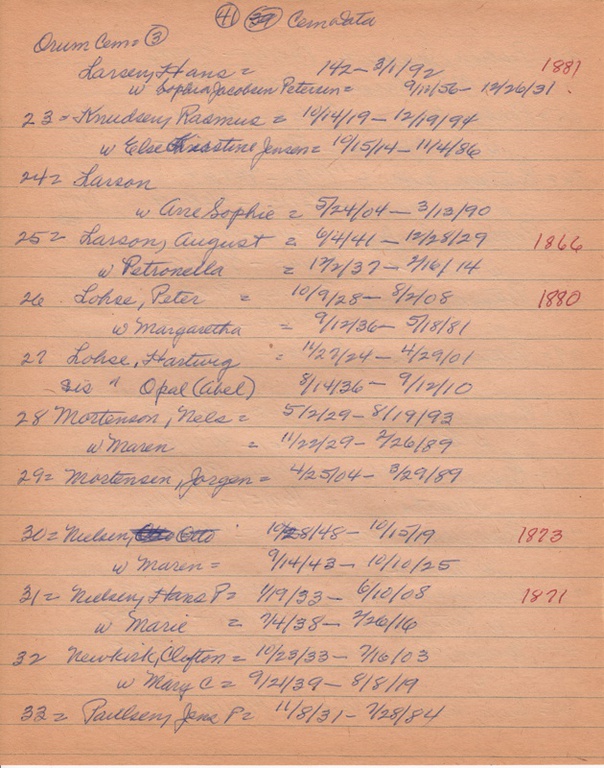 41 39 Cem data
Orum Cem = 3
Larsen, Hans = 142 – 3/1/92 1881
w Sophia Jacobsen Petersen = 9/12/56 – 12/26/31
23 = Knudsen, Rasmus = 10/14/19 – 12/19/94
w Else Kirstine Jensen = 10/15/14 – 11/4/86
24 = Larson
w Ane Sophie = 5/24/04 – 3/13/90
25 = Larson, August = 6/4/41 – 12/28/29 1866
w Petronella = 12/2/37 – 2/16/14
26 Lohse, Peter = 10/9/28 – 8/2/08 1880
w Margaretha = 9/12/36 – 5/18/81
27 Lohse, Hartwig = 11/27/24 – 4/29/01
sis " Opal (Abel) 8/14/36 – 9/12/10
28 Mortenson, Nels = 5/2/29 – 8/19/93
w Maren = 11/22/29 – 2/26/89
29 = Mortensen, Jorgen = 4/25/04 – 3/29/89
30 = Nielsen, Otto 10/28/48 – 10/15/19 1873
w Maren = 9/14/43 – 10/10/25
31 = Nielsen, Hans P = 1/19/33 – 6/10/08 1871
w Marie = 7/4/38 – 2/26/16
32 Newkirk, Clifton = 10/23/33 – 7/16/03
w Mary C = 9/24/39 – 8/8/19
33 = Paulsen, Jens P = 11/8/31 – 7/28/84